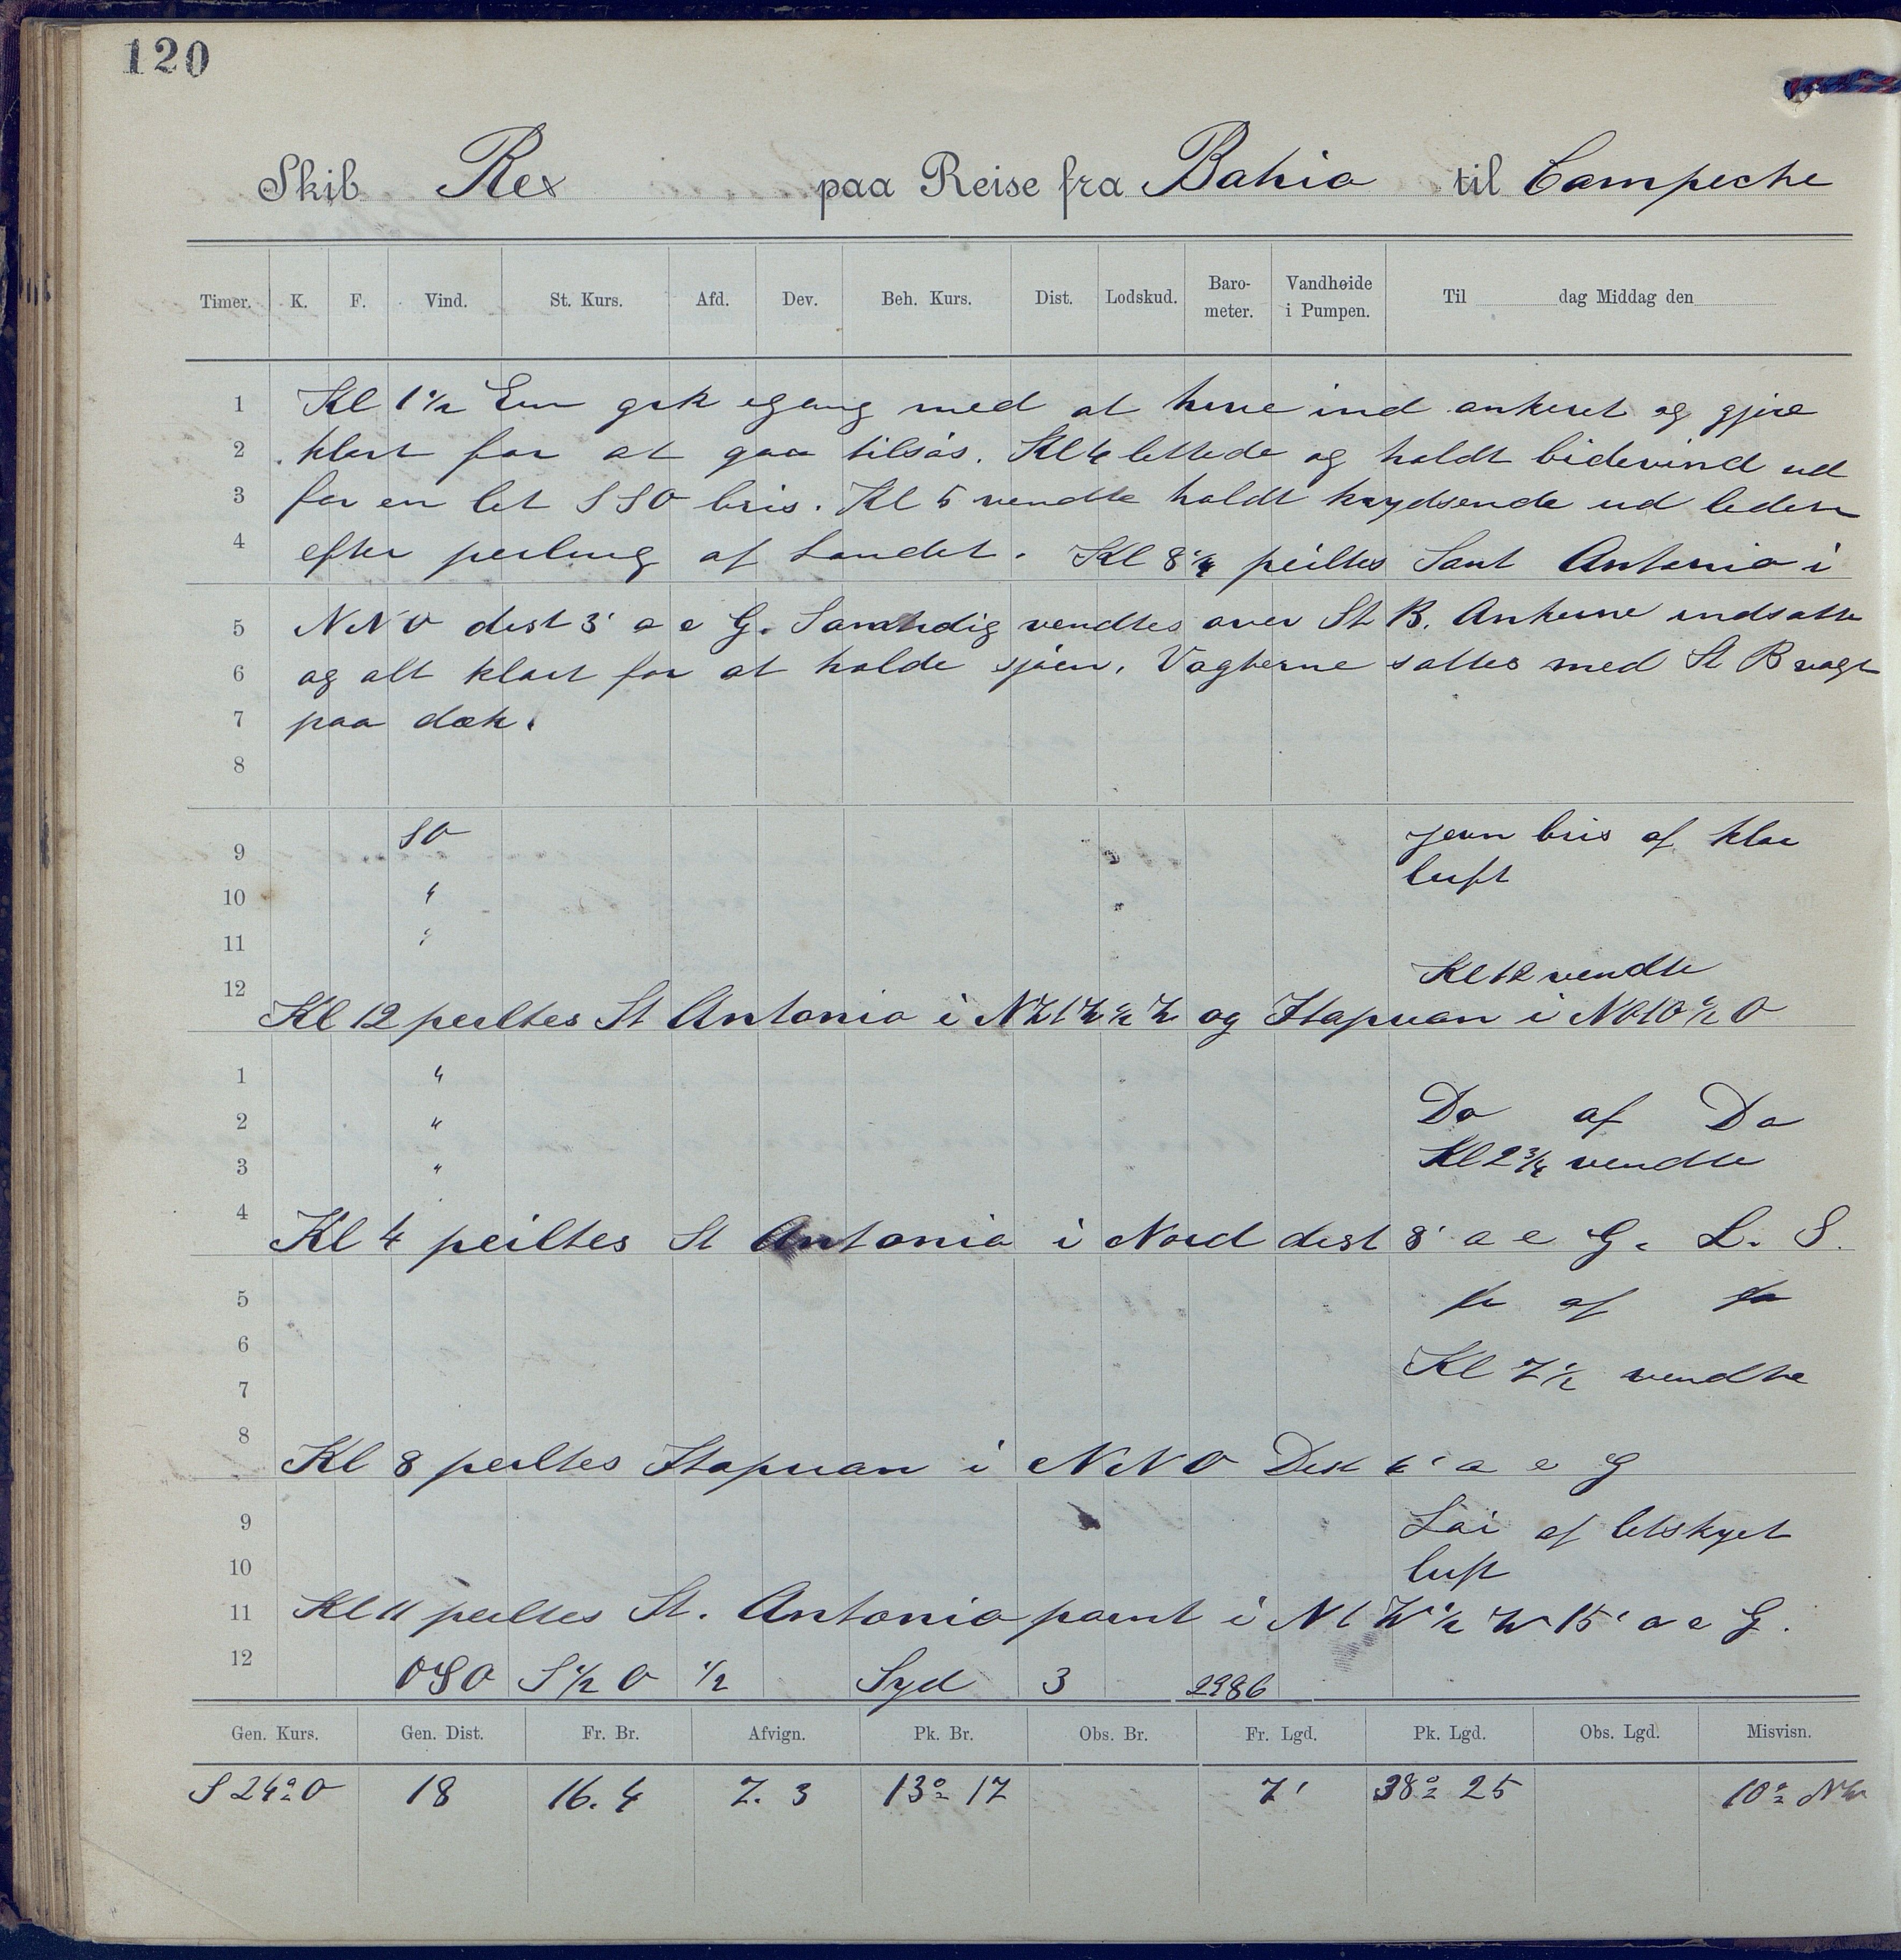 120
Skib Rex paa Reise fra Bahia til Campeche
Timer. K. F. Vind. St. Kurs. Afd. Dev. Beh. Kurs. Dist. Lodskud. Baro-meter. Vandhøide i Pumpen. Til dag Middag den
1 Kl 1 1/2 Em gik igang med at hive ind ankeret og gjøre
2 klart for at gaa tilsös. Kl 4 lettede og holdt bidevind ud
3 for en let SSO bris. Kl 5 vendte holdt krydsende ud leden
4 efter peiling af Landet. Kl 8 1/4 peiltes Sant Antonio i
5 NNO dist 3' a e G. Samtidig vendtes over St B. Ankerne indsatte
6 og alt klart for at holde sjöen. Vagterne sattes med St B vagt
7 paa dæk.
8
9 SO jevn bris af klar
luft
10 "
11 "
Kl 12 vendte
12 Kl 12 peiltes St Antonio i NWtW 1/2 W og Itapuan i NOtO 1/2 O
1 "
2 " Do af Do
3 " Kl 2 3/4 vendte
4 Kl 4 peiltes St Antonio i Nord dist 8' a e G. L. S.
5 do af do
6
Kl 7 1/2 vendte
7
8 Kl 8 peiltes Itapuan i NNO Dist 6' a e G
9 Löi af letskyet
10 luft
11 Kl 11 peiltes St. Antonio point i NtW 1/2 W 15' a e G.
12 OSO S 1/2 O 1/2 Syd 3 2986
Gen. Kurs. Gen. Dist. Fr. Br. Afvign. Pk. Br. Obs. Br. Fr. Lgd. Pk. Lgd. Obs. Lgd. Misvisn.
S 24° O 18 16.4 7.3 13° 17 7' 38° 25 10° NW